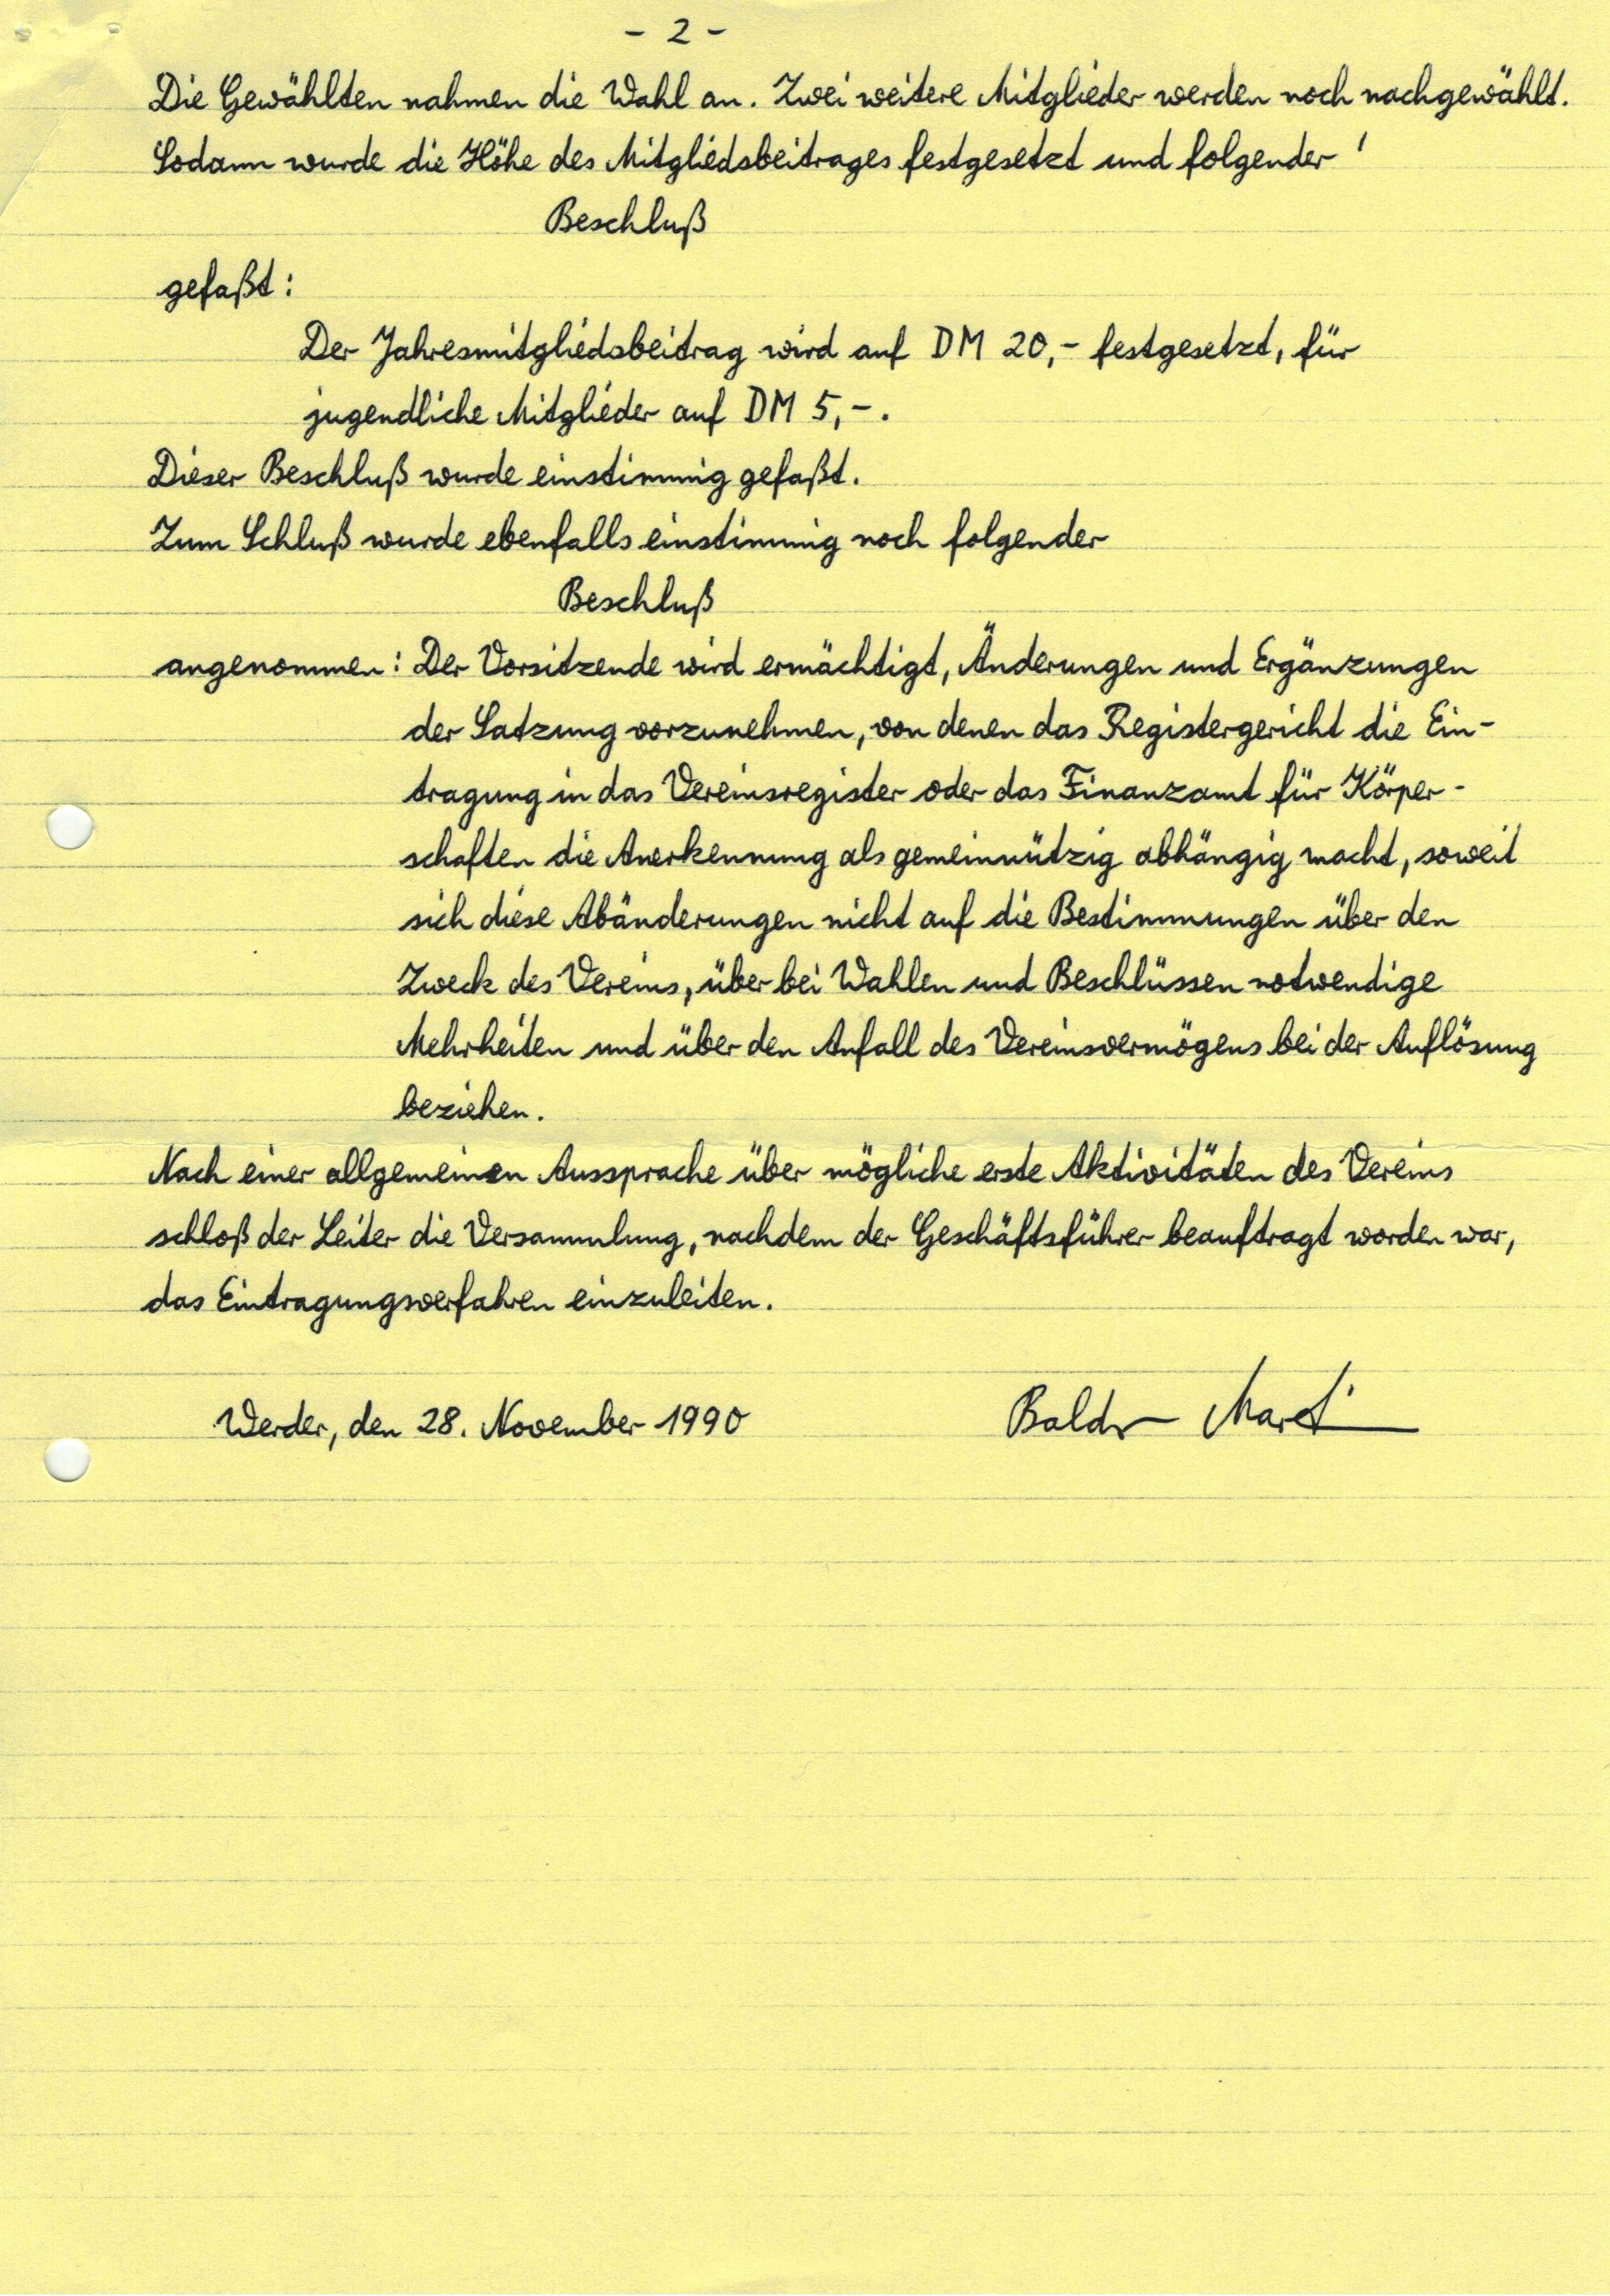 - 2 -
Die Gewählten nahmen die Wahl an. Zwei weitere Mitglieder werden noch nachgewählt.
Sodann wurde die Höhe des Mitgliedsbeitrages festgesetzt und folgender
Beschluß
gefaßt:
Der Jahresmitgliedsbeitrag wird auf DM 20,- festgesetzt, für
jugendliche Mitglieder auf DM 5,-.
Dieser Beschluß wurde einstimmig gefaßt.
Zum Schluß wurde ebenfalls einstimmig noch folgender
Beschluß
angenommen: Der Vorsitzende wird ermächtigt, Änderungen und Ergänzungen
der Satzung vorzunehmen, von denen das Registergericht die Ein-
tragung in das Vereinsregister oder das Finanzamt für Körper-
schaften die Anerkennung als gemeinnützig abhängig macht, soweit
sich diese Abänderungen nicht auf die Bestimmungen über den
Zweck des Vereins, über bei Wahlen und Beschlüssen notwendige
Mehrheiten und über den Anfall des Vereinsvermögens bei der Auflösung
beziehen.
Nach einer allgemeinen Aussprache über mögliche erste Aktivitäten des Vereins
schloß der Leiter die Versammlung, nachdem der Geschäftsführer beauftragt worden war,
das Eintragungsverfahren einzuleiten.
Werder, den 28. November 1990